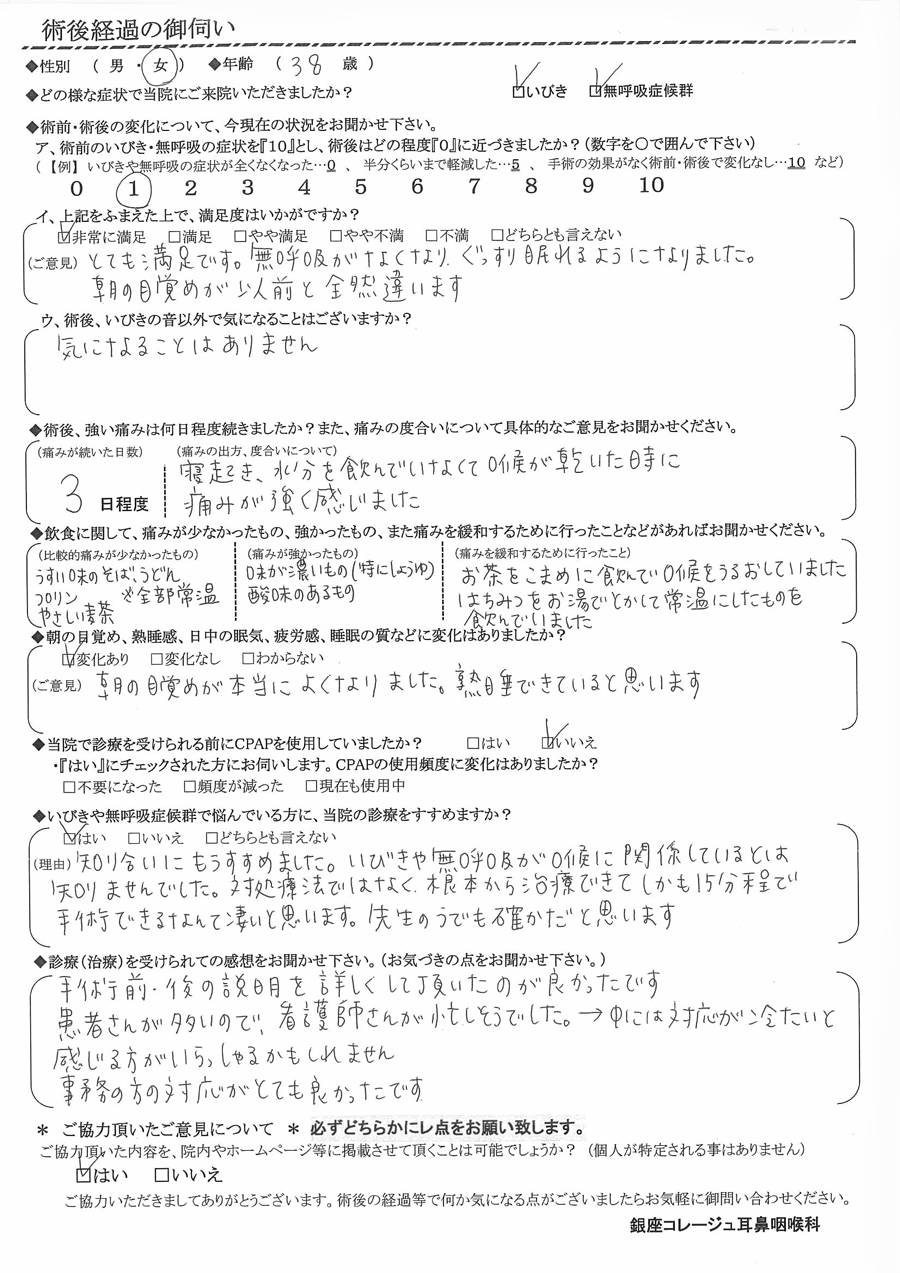 術後経過の御伺い
◆性別 （ 男 ・ 女 ） ◆年齢 （ 38 歳 ）
◆どの様な症状で当院にご来院いただきましたか？ ☑いびき ☑無呼吸症候群
◆術前・術後の変化について、今現在の状況をお聞かせ下さい。
ア、術前のいびき・無呼吸の症状を『10』とし、術後はどの程度『0』に近づきましたか？（数字を○で囲んで下さい）
（ 【例】 いびきや無呼吸の症状が全くなくなった…0 、 半分くらいまで軽減した…5 、 手術の効果がなく術前・術後で変化なし…10 など）
0 1 2 3 4 5 6 7 8 9 10
イ、上記をふまえた上で、満足度はいかがですか？
☑非常に満足 □満足 □やや満足 □やや不満 □不満 □どちらとも言えない
（ご意見） とても満足です。無呼吸がなくなり、ぐっすり眠れるようになりました。
朝の目覚めが以前と全然違います
ウ、術後、いびきの音以外で気になることはございますか？
気になることはありません
◆術後、強い痛みは何日程度続きましたか？また、痛みの度合いについて具体的なご意見をお聞かせください。
（痛みが続いた日数） （痛みの出方、度合いについて）
3 日程度
寝起き、水分を飲んでいなくて口候が乾いた時に
痛みが強く感じました
◆飲食に関して、痛みが少なかったもの、強かったもの、また痛みを緩和するために行ったことなどがあればお聞かせください。
（比較的痛みが少なかったもの） （痛みが強かったもの） （痛みを緩和するために行ったこと）
うすい味のそば、うどん
プリン ※全部常温
やさい麦茶
味が濃いもの（特にしょうゆ）
酸味のあるもの
お茶をこまめに飲んで口候をうるおしていました
はちみつをお湯でとかして常温にしたものを
飲んでいました
◆朝の目覚め、熟睡感、日中の眠気、疲労感、睡眠の質などに変化はありましたか？
☑変化あり □変化なし □わからない
（ご意見） 朝の目覚めが本当によくなりました。熟睡できていると思います
◆当院で診療を受けられる前にCPAPを使用していましたか？ □はい ☑いいえ
・『はい』にチェックされた方にお伺いします。CPAPの使用頻度に変化はありましたか？
□不要になった □頻度が減った □現在も使用中
◆いびきや無呼吸症候群で悩んでいる方に、当院の診療をすすめますか？
☑はい □いいえ □どちらとも言えない
（理由） 知り合いにもうすすめました。いびきや無呼吸が口候に関係しているとは
知りませんでした。対処療法ではなく、根本から治療できてしかも15分程で
手術できるなんて凄いと思います。先生のうでも確かだと思います
◆診療（治療）を受けられての感想をお聞かせ下さい。（お気づきの点をお聞かせ下さい。）
手術前・後の説明を詳しくして頂いたのが良かったです
患者さんが多いので、看護師さんが忙しそうでした。→中には対応が冷たいと
感じる方がいらっしゃるかもしれません
事務の方の対応がとても良かったです
＊ ご協力頂いたご意見について ＊ 必ずどちらかにレ点をお願い致します。
ご協力頂いた内容を、院内やホームページ等に掲載させて頂くことは可能でしょうか？ （個人が特定される事はありません）
☑はい □いいえ
ご協力いただきましてありがとうございます。術後の経過等で何か気になる点がございましたらお気軽に御問い合わせください。
銀座コレージュ耳鼻咽喉科